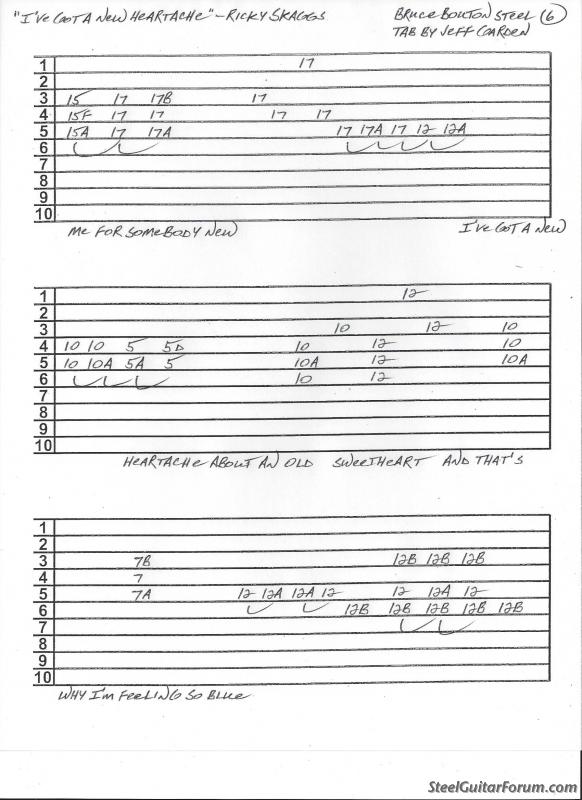 "I've Got A New Heartache" - Ricky Skaggs
Bruce Bouton Steel 6
Tab By Jeff Garden
1 17
2
3 15 17 17B 17
4 15F 17 17 17 17
5 15A 17 17A 17 17A 17 12 12A
6
7
8
9
10
Me For Somebody New I've Got A New
1 12
2
3 10 12 10
4 10 10 5 5D 10 12 10
5 10 10A 5A 5 10A 12 10A
6 10 12
7
8
9
10
Heartache About An Old Sweetheart And That's
1
2
3 7B 12B 12B 12B
4 7
5 7A 12 12A 12A 12 12 12A 12
6 12B 12B 12B 12B 12B
7
8
9
10
Why I'm Feeling So Blue
SteelGuitarForum.com